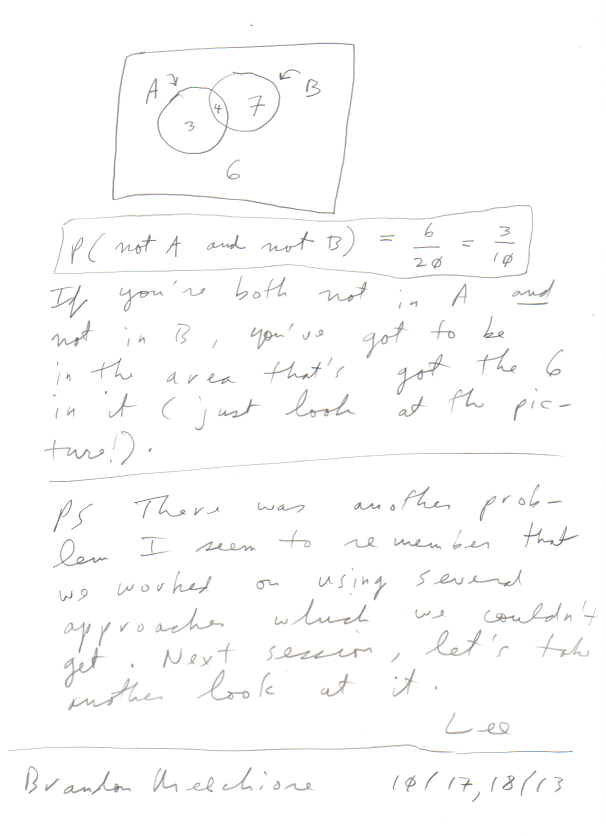 A B
3 4 7
6
P( not A and not B) = 6/20 = 3/10
If you're both not in A and
not in B, you've got to be
in the area that's got the 6
in it (just look at the pic-
ture!).
PS There was another prob-
lem I seem to remember that
we worked on using several
approaches which we couldn't
get. Next session, let's take
another look at it.
Lee
Brandon 10/17,18/13